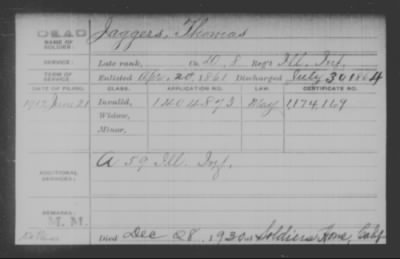 DEAD
NAME OF SOLDIER: Jaggers, Thomas
SERVICE: Late rank, Co. D, 8 Reg't Ill. Inf.
TERM OF SERVICE: Enlisted Apr. 20, 1861 Discharged July 30 1864
DATE OF FILING. CLASS. APPLICATION NO. LAW. CERTIFICATE NO.
1912 June 21 Invalid, 1404873 May 1174,169
Widow,
Minor,
ADDITIONAL SERVICES: A 59 Ill. Inf.
REMARKS:
M. M.
Died Dec 28, 1930 at Soldiers Home, Calif